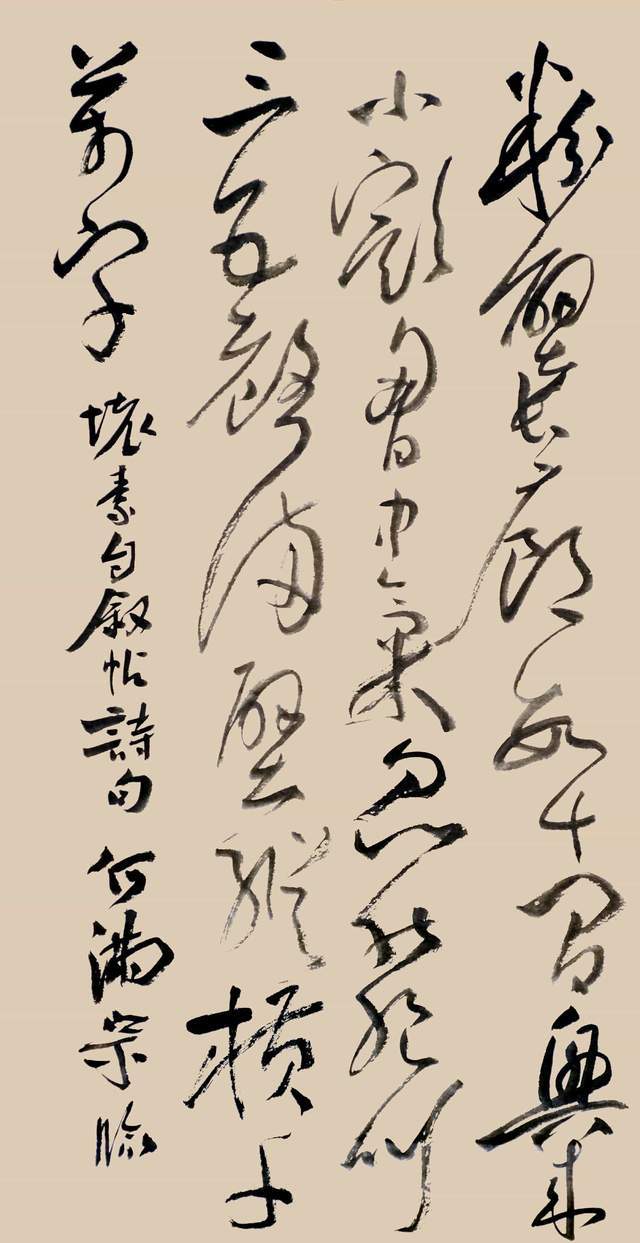 粉壁長廊數十間興來
小豁胸中氣忽然絕叫
三五聲滿壁縱橫千
萬字 懷素自叙帖詩句 何滿宗臨